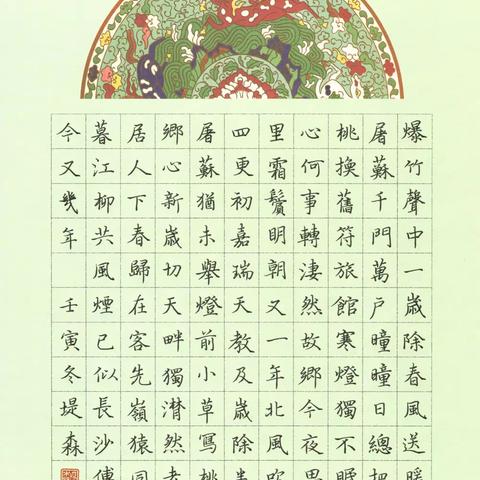 爆竹聲中一歲除春風送暖
屠蘇千門萬戶曈曈日總把
桃換舊符旅館寒燈獨不眠
心何事轉淒然故鄉今夜思
里霜鬢明朝又一年北風吹
四更初嘉瑞天教及歲除半
屠蘇猶未舉燈前小草寫桃
鄉心新歲切天畔獨潸然老
居人下春歸在客先嶺猿同
暮江柳共風煙已似長沙傅
今又幾年 壬寅冬堤森